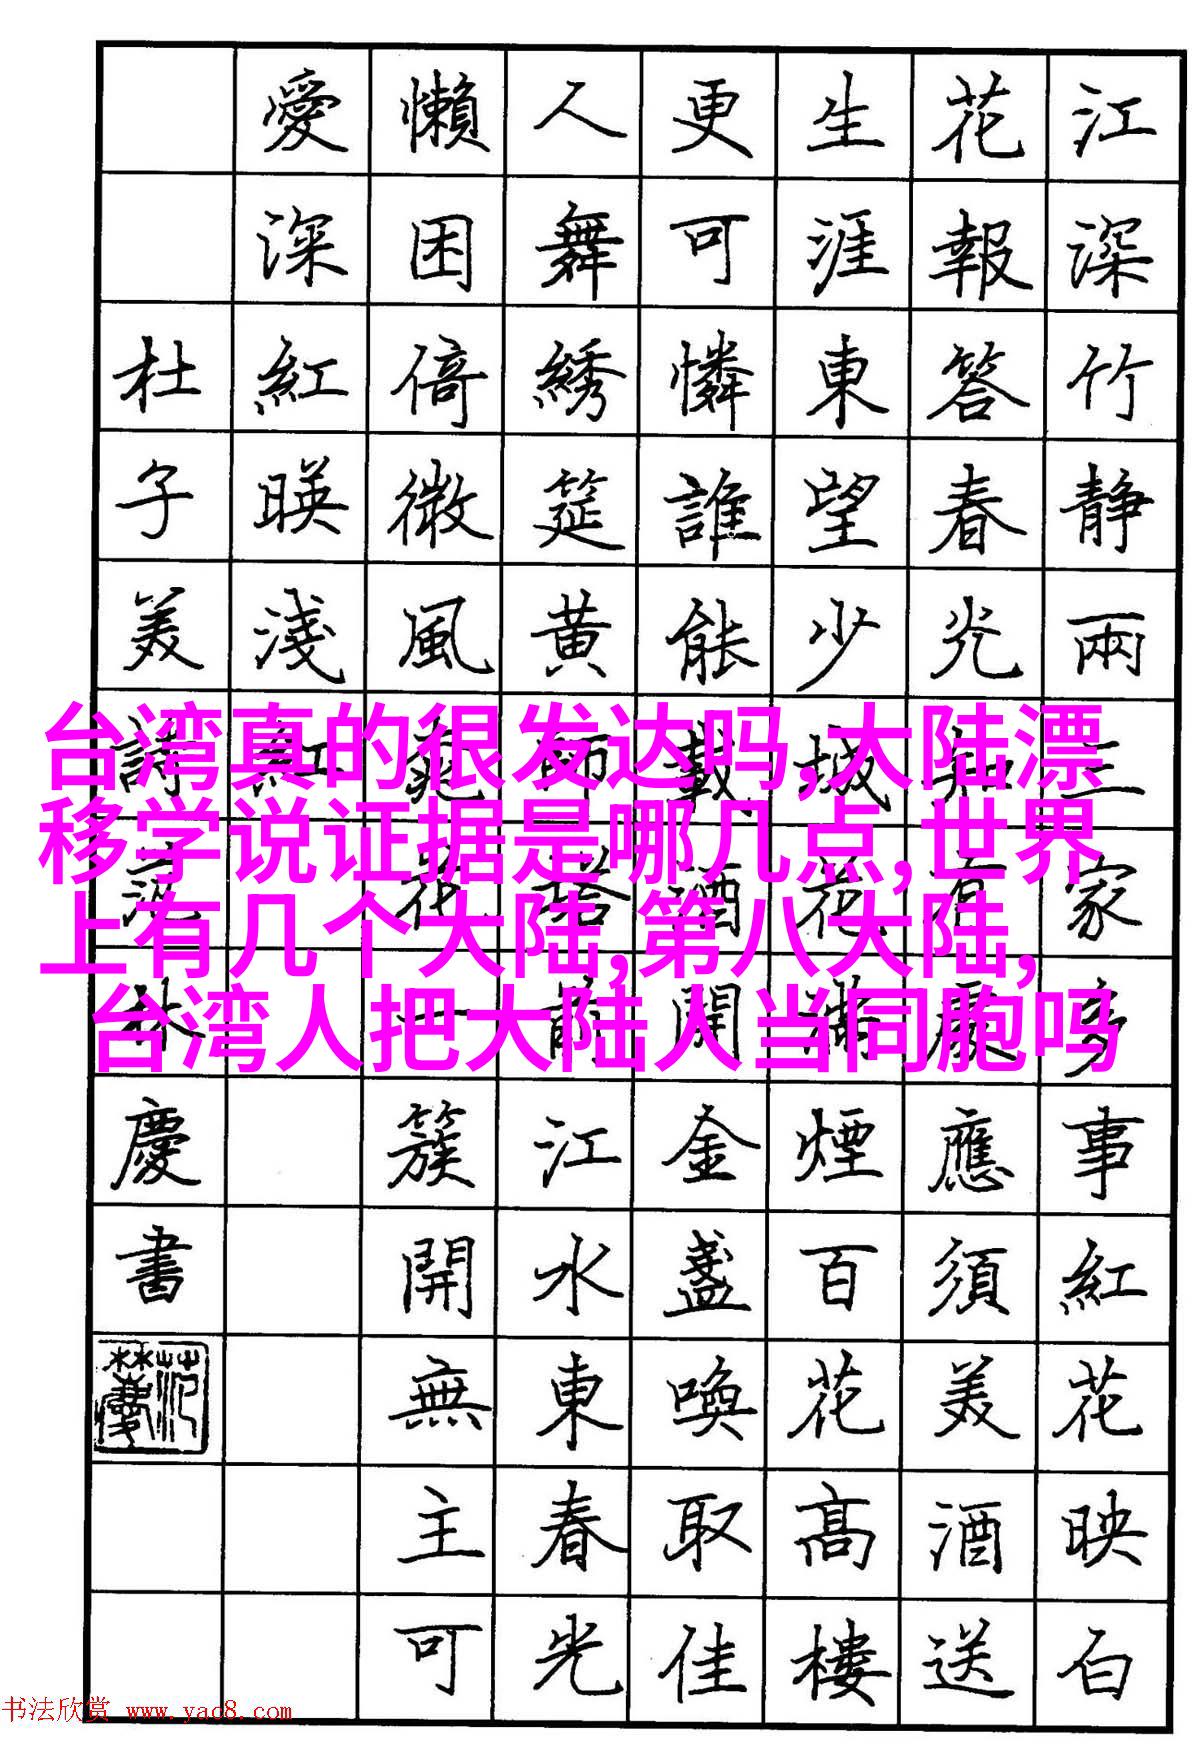 江深竹静兩三家多事紅花映白
花報答春光知有處應須美酒送
生涯東望少城花滿煙百花高樓
更可憐誰能載酒開金盞喚取佳
人舞綉筵黄師塔前江水東春光
懶困倚微風桃花一簇開無主可
愛深紅暎淺紅
杜子美詩范林慶書
台湾真的很发达吗,大陆漂
移学说证据是哪几点,世界
上有几个大陆,第八大陆,
台湾人把大陆人当同胞吗
书法欣赏 www.yac8.com